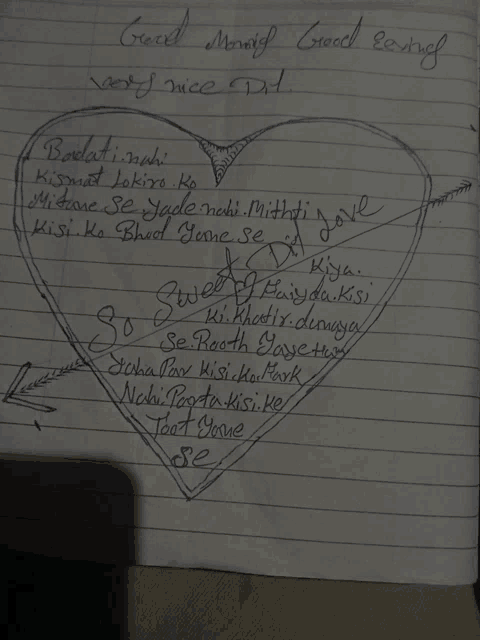 Good Morning Good Eavning
very nice Dil
Badati nahi
Kismat Lokiro. Ko
Mitane Se yade nahi. Mithti
Kisi. Ko Bhool Jane. Se
So Sweet Dil Love
Kiya.
Faiyda. Kisi
Ki. Khatir. duniaya
Se. Rooth Jaye Hum
Jaha Par Kisi. Ko. Fark
Nahi. Paarta. Kisi. Ke
Toot Jane
Se